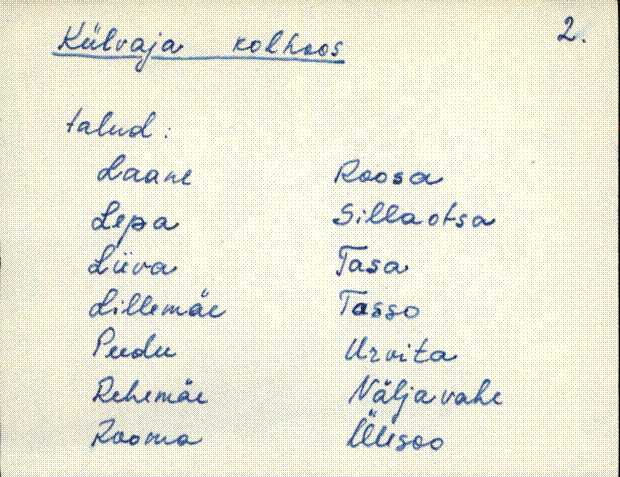 Külvaja kolhoos 2.
talud:
Laane Roosa
Lepa Sillaotsa
Liiva Tasa
Lillemäe Tasso
Peedu Urvita
Rehemäe Näljavahe
Rooma Ülesoo